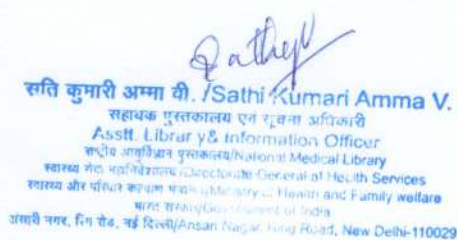 Sathy V
सति कुमारी अम्मा वी. /Sathi Kumari Amma V.
सहायक पुस्तकालय एवं सूचना अधिकारी
Asstt. Library & Information Officer
राष्ट्रीय आयुर्विज्ञान पुस्तकालय/National Medical Library
स्वास्थ्य सेवा महानिदेशालय/Directorate General of Health Services
स्वास्थ्य और परिवार कल्याण मंत्रालय/Ministry of Health and Family welfare
भारत सरकार/Government of India
अंसारी नगर, रिंग रोड, नई दिल्ली/Ansari Nagar, Ring Road, New Delhi-110029